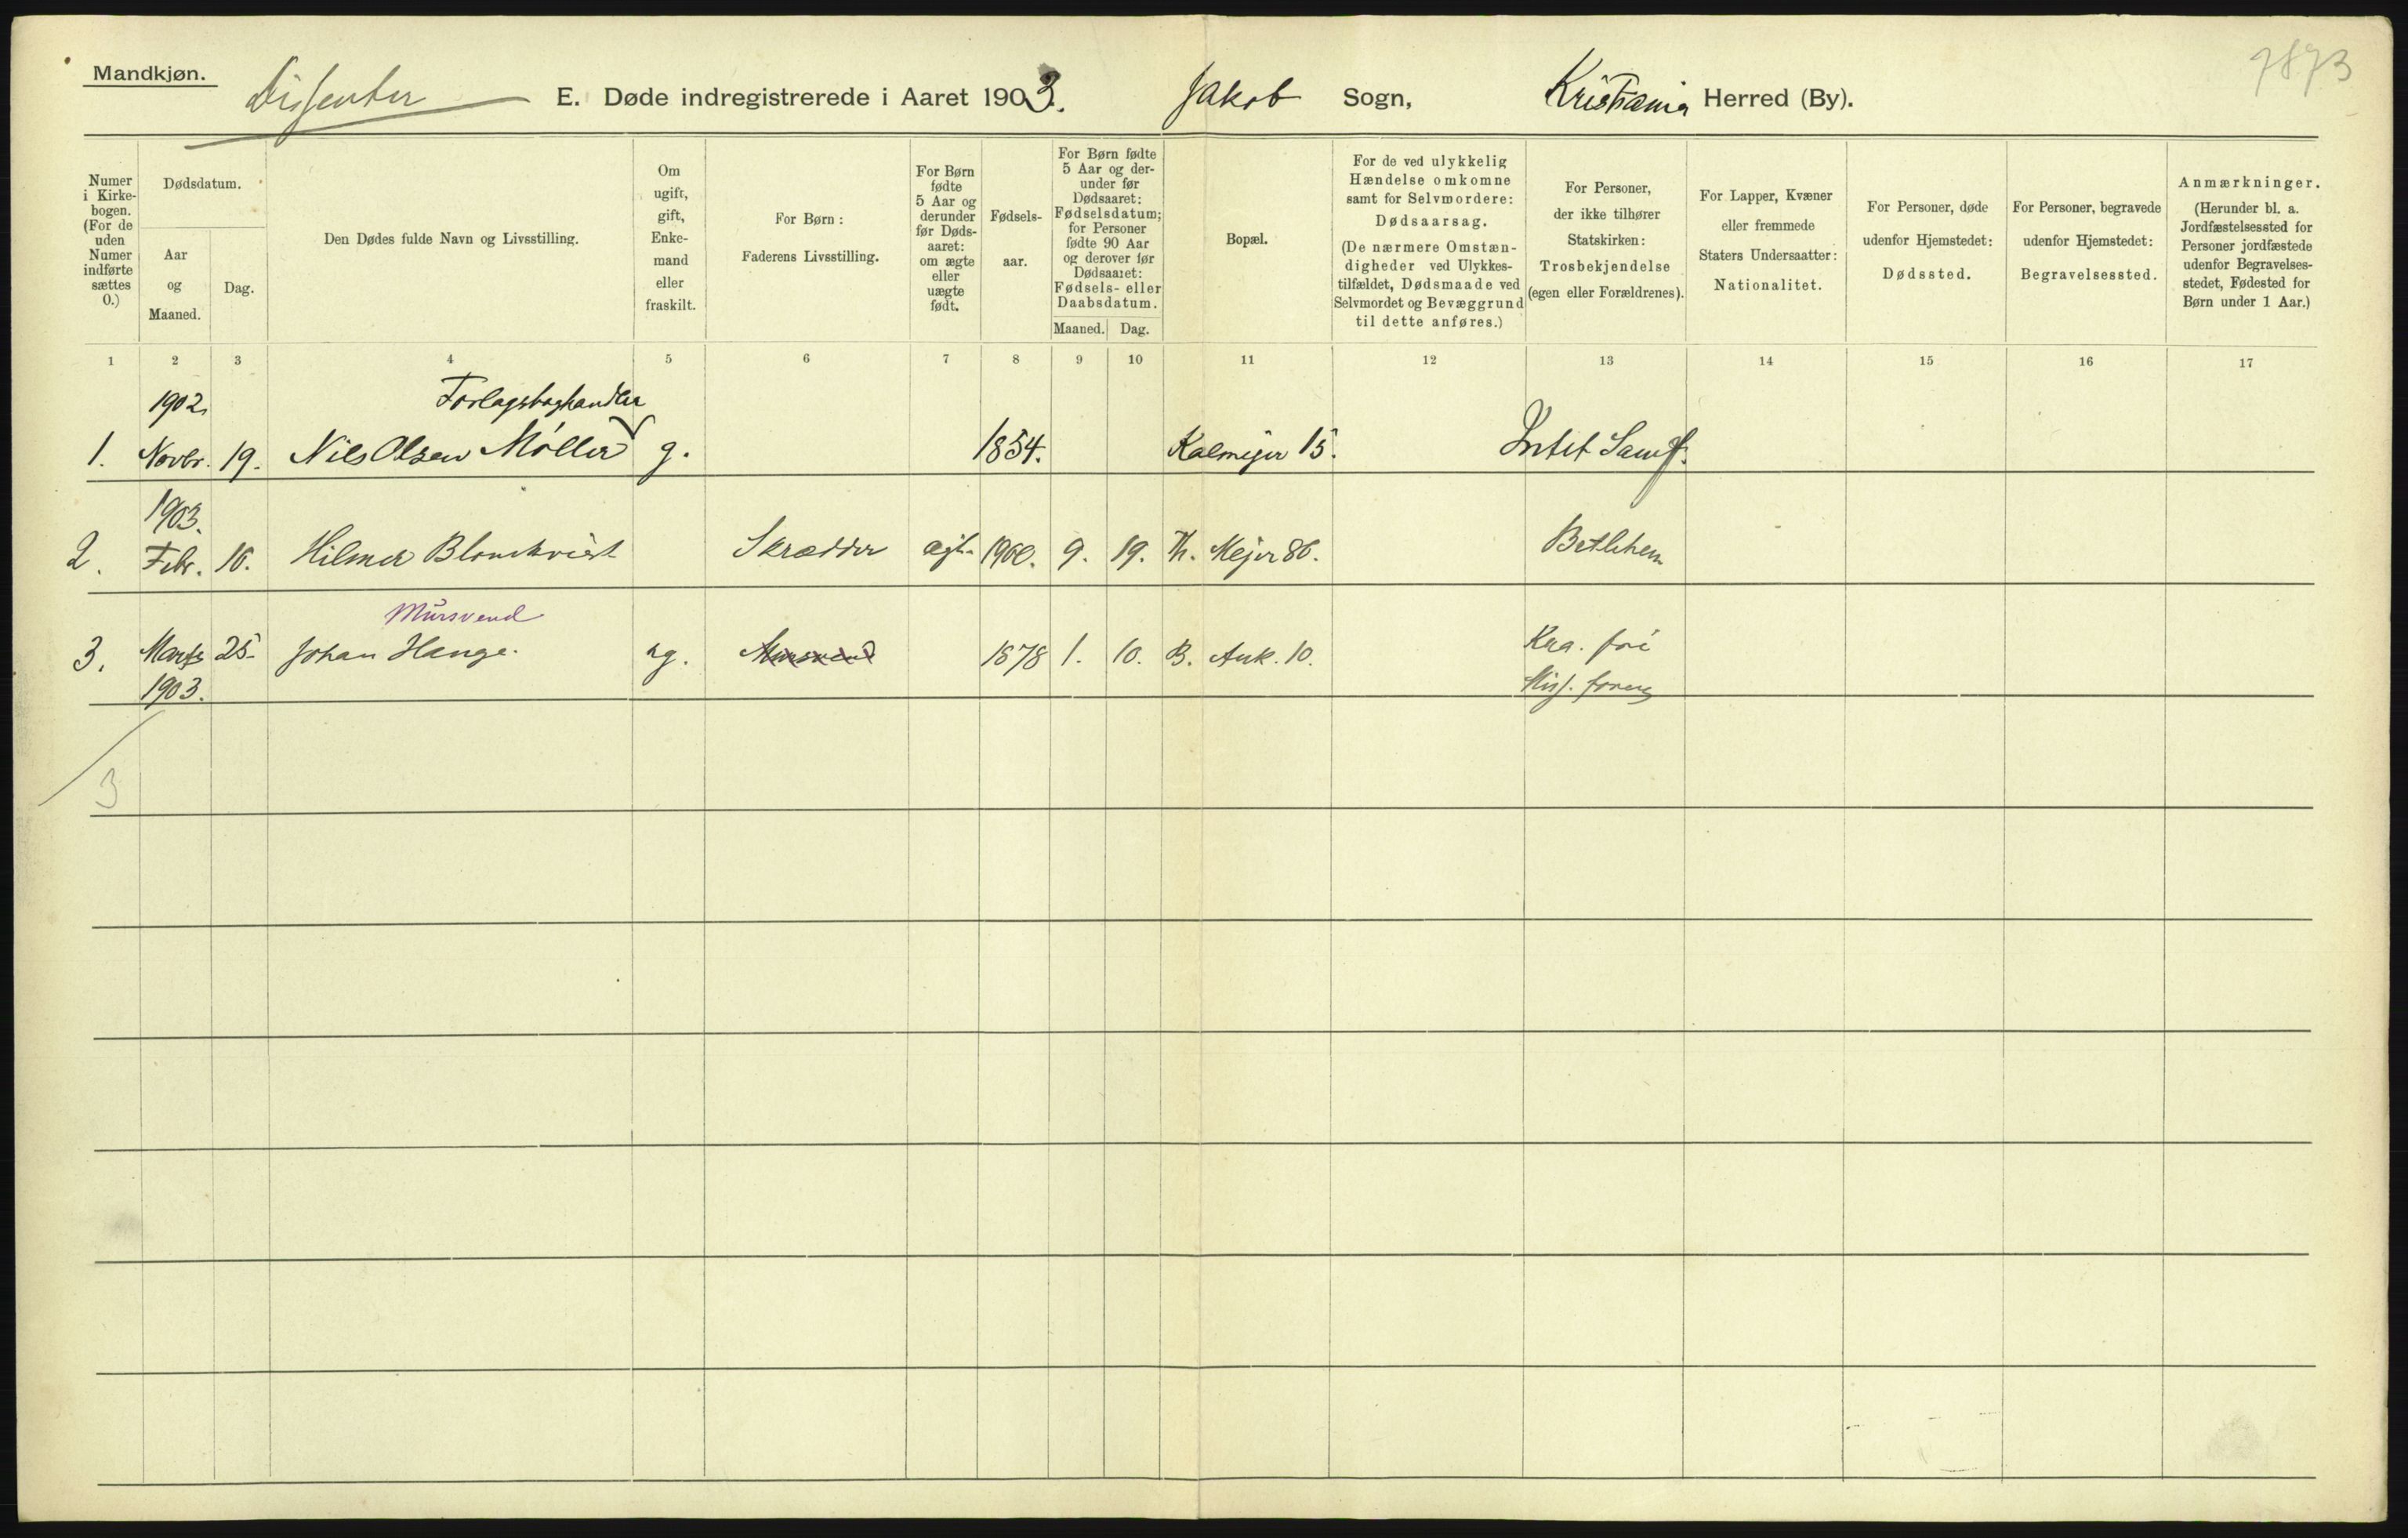 Mandkjøn.
Dissenter E. Døde indregistrerede i Aaret 1903. Jakob Sogn, Kristiania Herred (By).
7873
Numer i Kirkebogen. (For de uden Numer indførte sættes 0.)
Dødsdatum.
Aar og Maaned.
Dag.
Den Dødes fulde Navn og Livsstilling.
Om ugift, gift, Enkemand eller fraskilt.
For Børn: Faderens Livsstilling.
For Børn fødte 5 Aar og derunder før Dødsaaret: om ægte eller uægte født.
Fødselsaar.
For Børn fødte 5 Aar og derunder før Dødsaaret: Fødselsdatum; for Personer fødte 90 Aar og derover før Dødsaaret: Fødsels- eller Daabsdatum.
Maaned. Dag.
Bopæl.
For de ved ulykkelig Hændelse omkomne samt for Selvmordere: Dødsaarsag. (De nærmere Omstændigheder ved Ulykkestilfældet, Dødsmaade ved Selvmordet og Bevæggrund til dette anføres.)
For Personer, der ikke tilhører Statskirken: Trosbekjendelse (egen eller Forældrenes).
For Lapper, Kvæner eller fremmede Staters Undersaatter: Nationalitet.
For Personer, døde udenfor Hjemstedet: Dødssted.
For Personer, begravede udenfor Hjemstedet: Begravelsessted.
Anmærkninger. (Herunder bl. a. Jordfæstelsessted for Personer jordfæstede udenfor Begravelsesstedet, Fødested for Børn under 1 Aar.)
1 2 3 4 5 6 7 8 9 10 11 12 13 14 15 16 17
1902 Forlagsboghandler
1. Novbr. 19. Nils Olsen Møller g. 1854. Kalmejer 15. Intet Samf.
1903.
2. Febr. 10. Hilmer Blomkvist Skrædder ægt. 1900. 9. 19. Th. Mejer 80. Betlehem
Mursvend
3. Marts 25. Johan Hange. ug. Mursvend 1878 1. 10. B. Ank. 10. Kra. fri
1903. Miss. foren
3